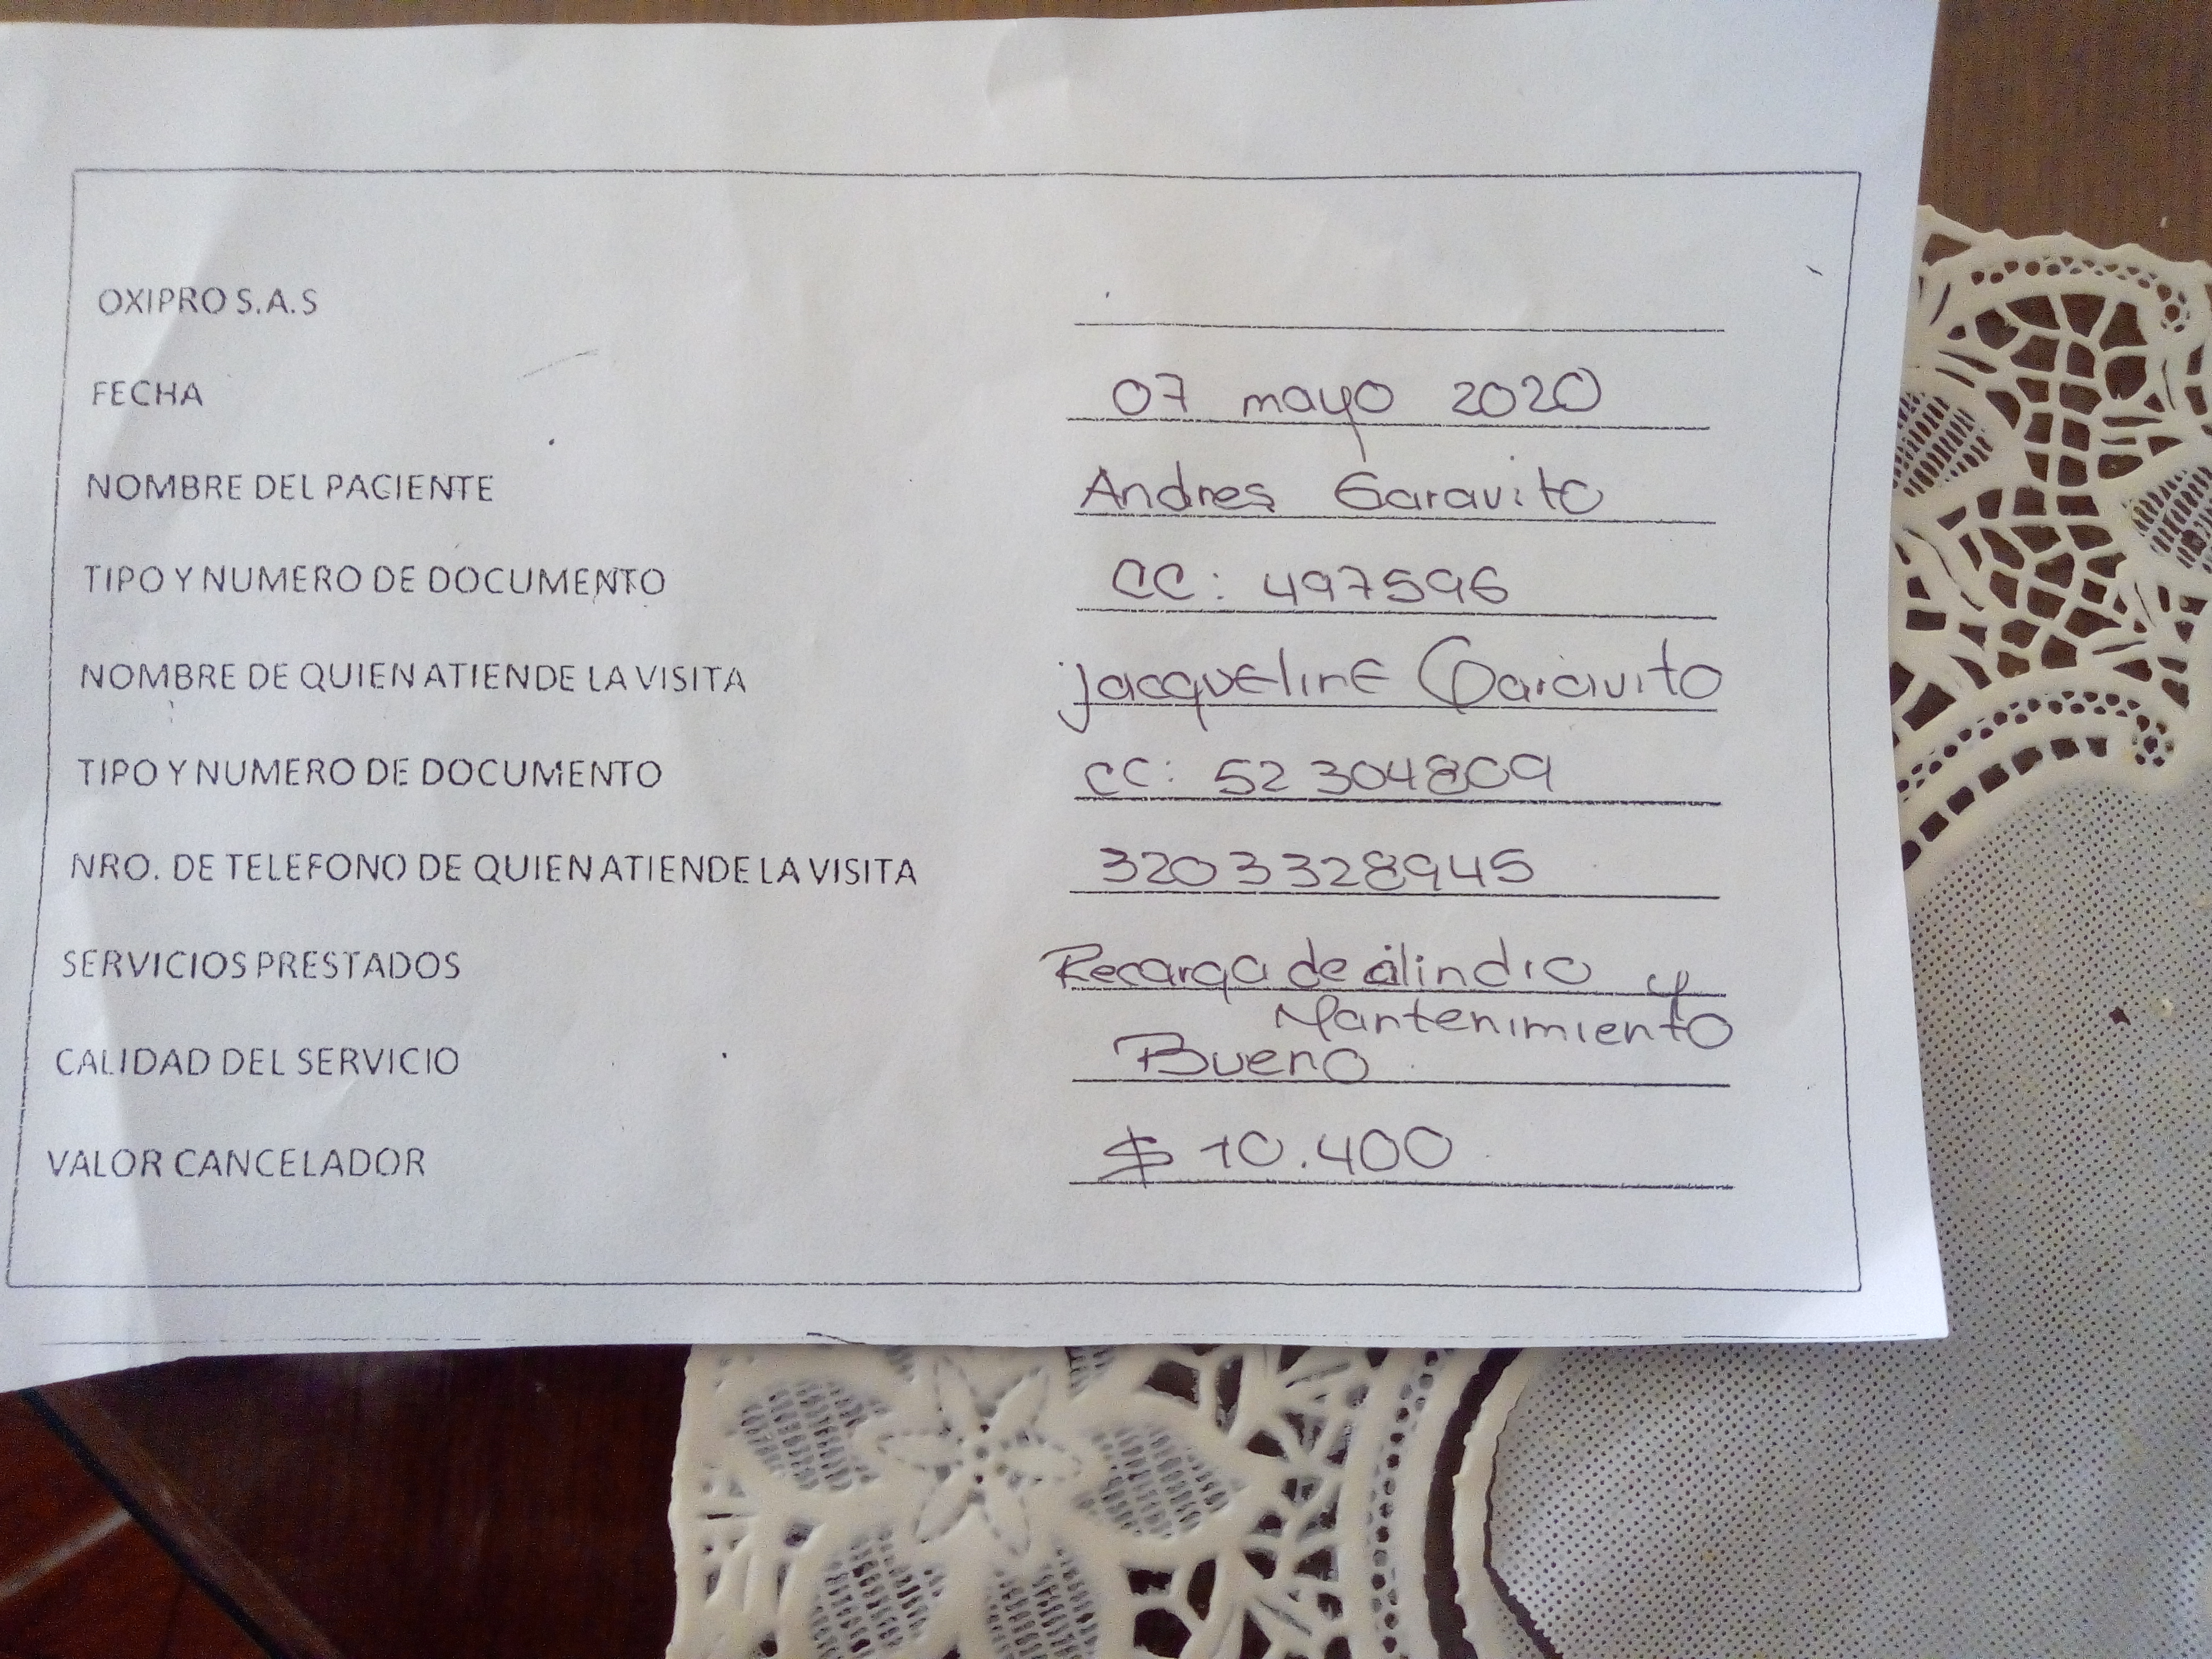 OXIPRO S.A.S
FECHA 07 mayo 2020
NOMBRE DEL PACIENTE Andres Garavito
TIPO Y NUMERO DE DOCUMENTO CC: 497596
NOMBRE DE QUIEN ATIENDE LA VISITA jacqueline Garavito
TIPO Y NUMERO DE DOCUMENTO CC: 52304809
NRO. DE TELEFONO DE QUIEN ATIENDE LA VISITA 3203328945
SERVICIOS PRESTADOS Recarga de cilindro y
Mantenimiento
CALIDAD DEL SERVICIO Bueno
VALOR CANCELADOR $ 10.400